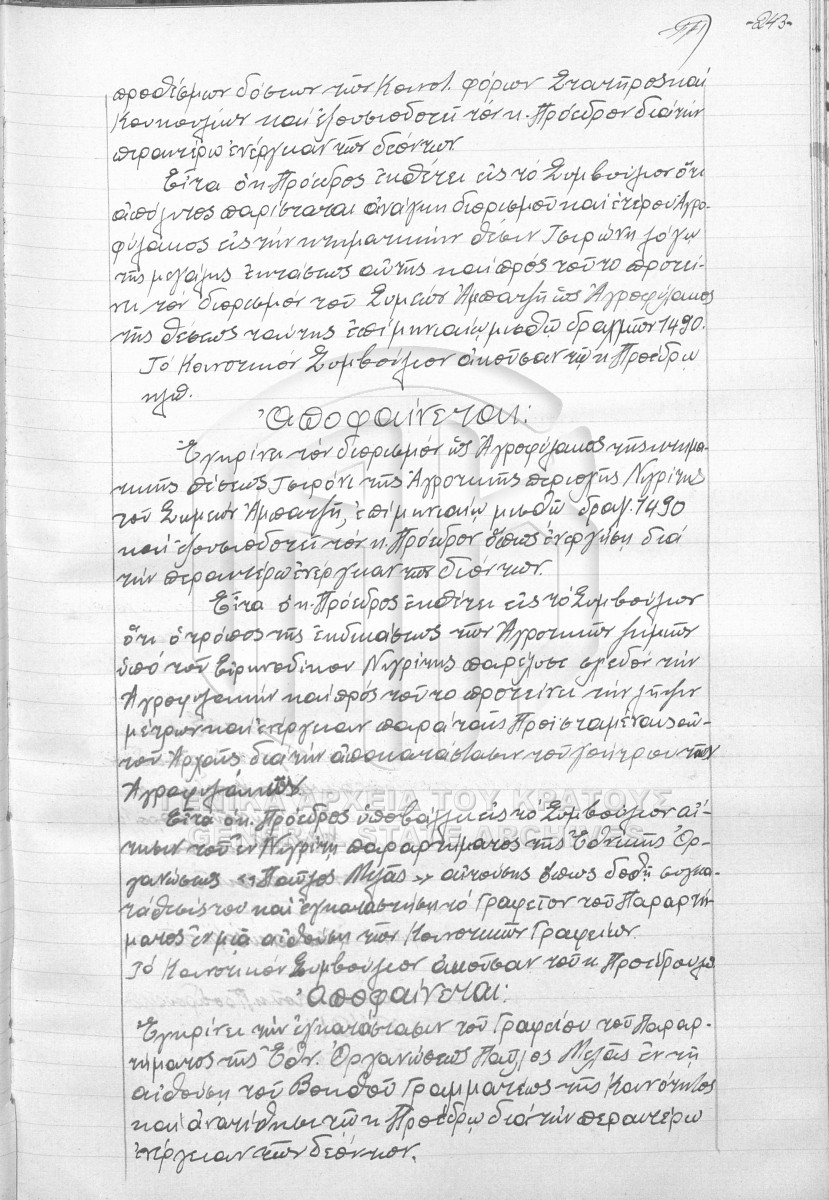 -243-
προθέσμων δόσεων τῶν Κοινοτ. φόρων Στατῆρος καί
Κουκουλίων καί ἐξουσιοδοτεῖ τόν κ. Πρόεδρον διά τήν
περαιτέρω ἐνέργειαν τῶν δεόντων.
Εἶτα ὁ κ. Πρόεδρος ἐκθέτει εἰς τό Συμβούλιον ὅτι
ἀπόλυτος παρίσταται ἀνάγκη διορισμοῦ καί ἑτέρου Ἀγρο-
φύλακος εἰς τήν κτηματικήν θέσιν Τσιρώνη λόγω
τῆς μεγάλης ἐκτάσεως αὐτῆς καί πρός τοῦτο προτεί-
νει τόν διορισμόν τοῦ Συμεών Ἀμπατζῆ ὡς Ἀγροφύλακος
τῆς θέσεως ταύτης ἐπί μηνιαίῳ μισθῷ δραχμῶν 1490.
Τό Κοινοτικόν Συμβούλιον ἀκοῦσαν τῷ κ Προέδρῳ
κλπ.
Ἀποφαίνεται:
Ἐγκρίνει τόν διορισμόν ὡς Ἀγροφύλακος τῆς κτημα-
τικῆς θέσεως Τσιρόνι τῆς Ἀγροτικῆς περιοχῆς Νιγρίτης
τοῦ Συμεών Ἀμπατζῆ, ἐπί μηνιαίῳ μισθῷ δραχ. 1490
καί ἐξουσιοδοτεῖ τόν κ. Πρόεδρον ὅπως ἐνεργήσῃ διά
τήν περαιτέρω ἐνέργειαν τῶν δεόντων.
Εἶτα ὁ κ. Πρόεδρος ἐκθέτει εἰς τό Συμβούλιον
ὅτι ὁ τρόπος τῆς ἐκδικάσεως τῶν Ἀγροτικῶν ζημιῶν
ὑπό τοῦ Εἰρηνοδίκου Νιγρίτης παρέλυσε σχεδόν τήν
Ἀγροφυλακήν καί πρός τοῦτο προτείνει τήν λῆψιν
μέτρων καί ἐνέργειαν παρά ταῖς Προϊσταμέναις αὐ-
τοῦ Ἀρχαῖς διά τήν ἀποκατάστασιν τοῦ γοήτρου τῶν
Ἀγροφυλάκων.
Εἶτα ὁ κ. Πρόεδρος ὑποβάλλει εἰς τό Συμβούλιον αἴ-
τησιν τοῦ ἐν Νιγρίτῃ παραρτήματος τῆς Ἐθνικῆς Ὀρ-
γανώσεως «Παῦλος Μελᾶς» αἰτούσης ὅπως δοθῇ συγκα-
τάθεσίς του καί ἐγκαταστήσῃ τό Γραφεῖον τοῦ Παραρτή-
ματος ἐν μιᾷ αἰθούσῃ τῶν Κοινοτικῶν Γραφείων.
Τό Κοινοτικόν Συμβούλιον ἀκοῦσαν τοῦ κ Προέδρου
Ἀποφαίνεται:
Ἐγκρίνει τήν ἐγκατάστασιν τοῦ Γραφείου τοῦ Παραρ-
τήματος τῆς Ἐθν. Ὀργανώσεως Παῦλος Μελᾶς ἐν τῇ
αἰθούσῃ τοῦ Βοηθοῦ Γραμματέως τῆς Κοινότητος
καί ἀνατίθησι τῷ κ Προέδρῳ διά τήν περαιτέρω
ἐνέργειαν τῶν δεόντων.
ΓΕΝΙΚΑ ΑΡΧΕΙΑ ΤΟΥ ΚΡΑΤΟΥΣ
GENERAL STATE ARCHIVES